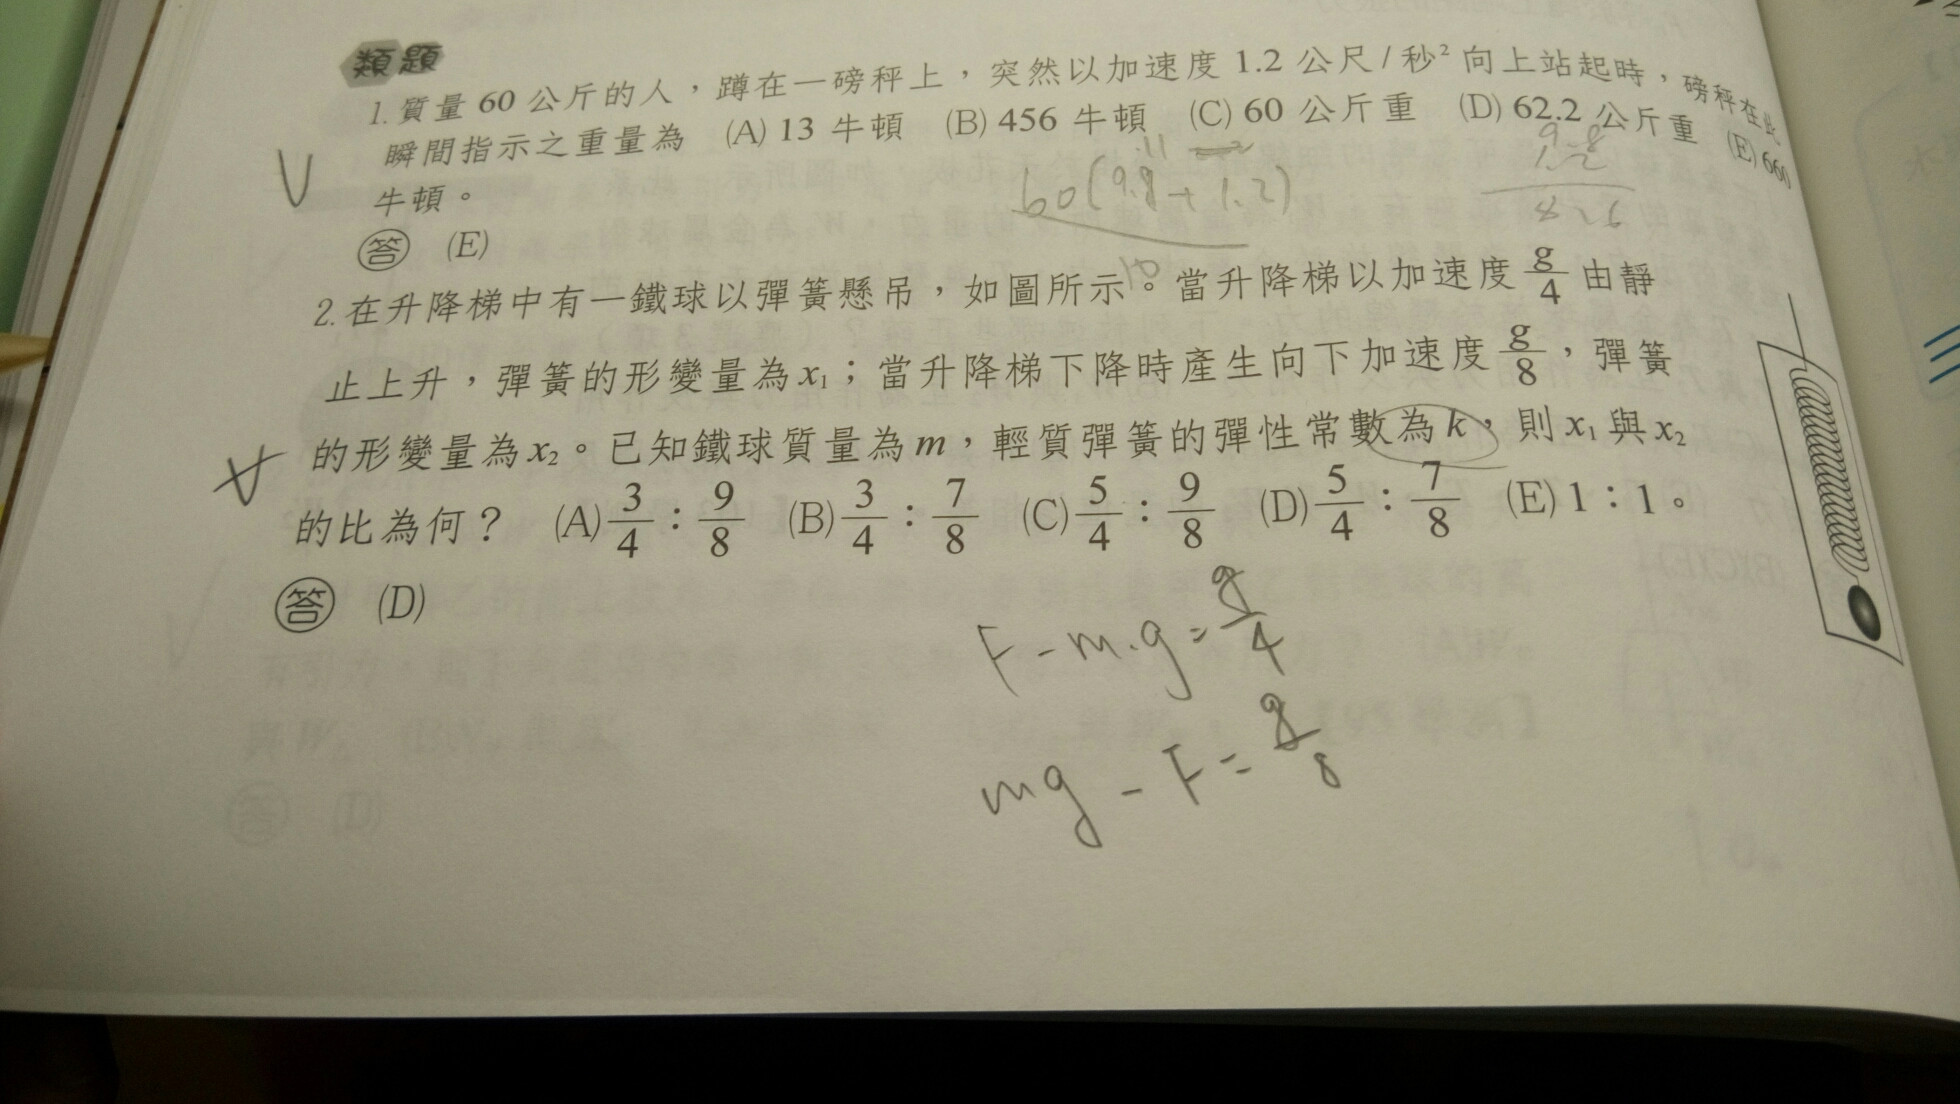 類題
1. 質量 60 公斤的人，蹲在一磅秤上，突然以加速度 1.2 公尺/秒² 向上站起時，磅秤在此
瞬間指示之重量為 (A) 13 牛頓 (B) 456 牛頓 (C) 60 公斤重 (D) 62.2 公斤重 (E) 660
牛頓。
60(9.8+1.2)
答 (E)
2. 在升降梯中有一鐵球以彈簧懸吊，如圖所示。當升降梯以加速度 g/4 由靜
止上升，彈簧的形變量為 x₁；當升降梯下降時產生向下加速度 g/8，彈簧
的形變量為 x₂。已知鐵球質量為 m，輕質彈簧的彈性常數為 k，則 x₁ 與 x₂
的比為何？ (A) 3/4：9/8 (B) 3/4：7/8 (C) 5/4：9/8 (D) 5/4：7/8 (E) 1：1。
答 (D)
F-m.g=g/4
mg-F=g/8